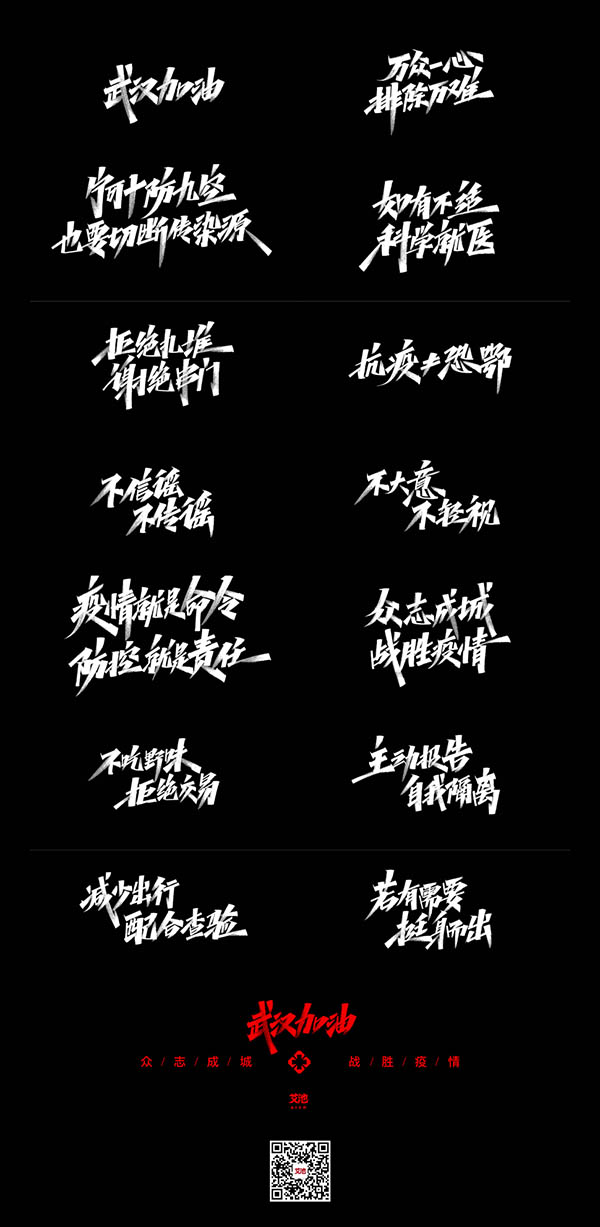 武汉加油
万众一心
排除万难
宁可十防九空
也要切断传染源
如有不适
科学就医
拒绝扎堆
谢绝串门
抗疫≠恐鄂
不信谣
不传谣
不大意
不轻视
疫情就是命令
防控就是责任
众志成城
战胜疫情
不吃野味
拒绝交易
主动报告
自我隔离
减少出行
配合查验
若有需要
挺身而出
武汉加油
众/志/成/城 战/胜/疫/情
艾池
艾池